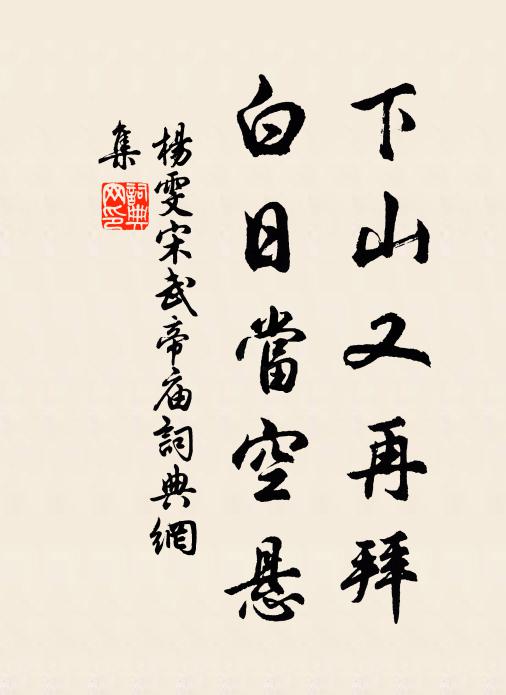 下山又再拜
白日當空悬
楊雯宋武帝庙詞典網
集
詞典網印